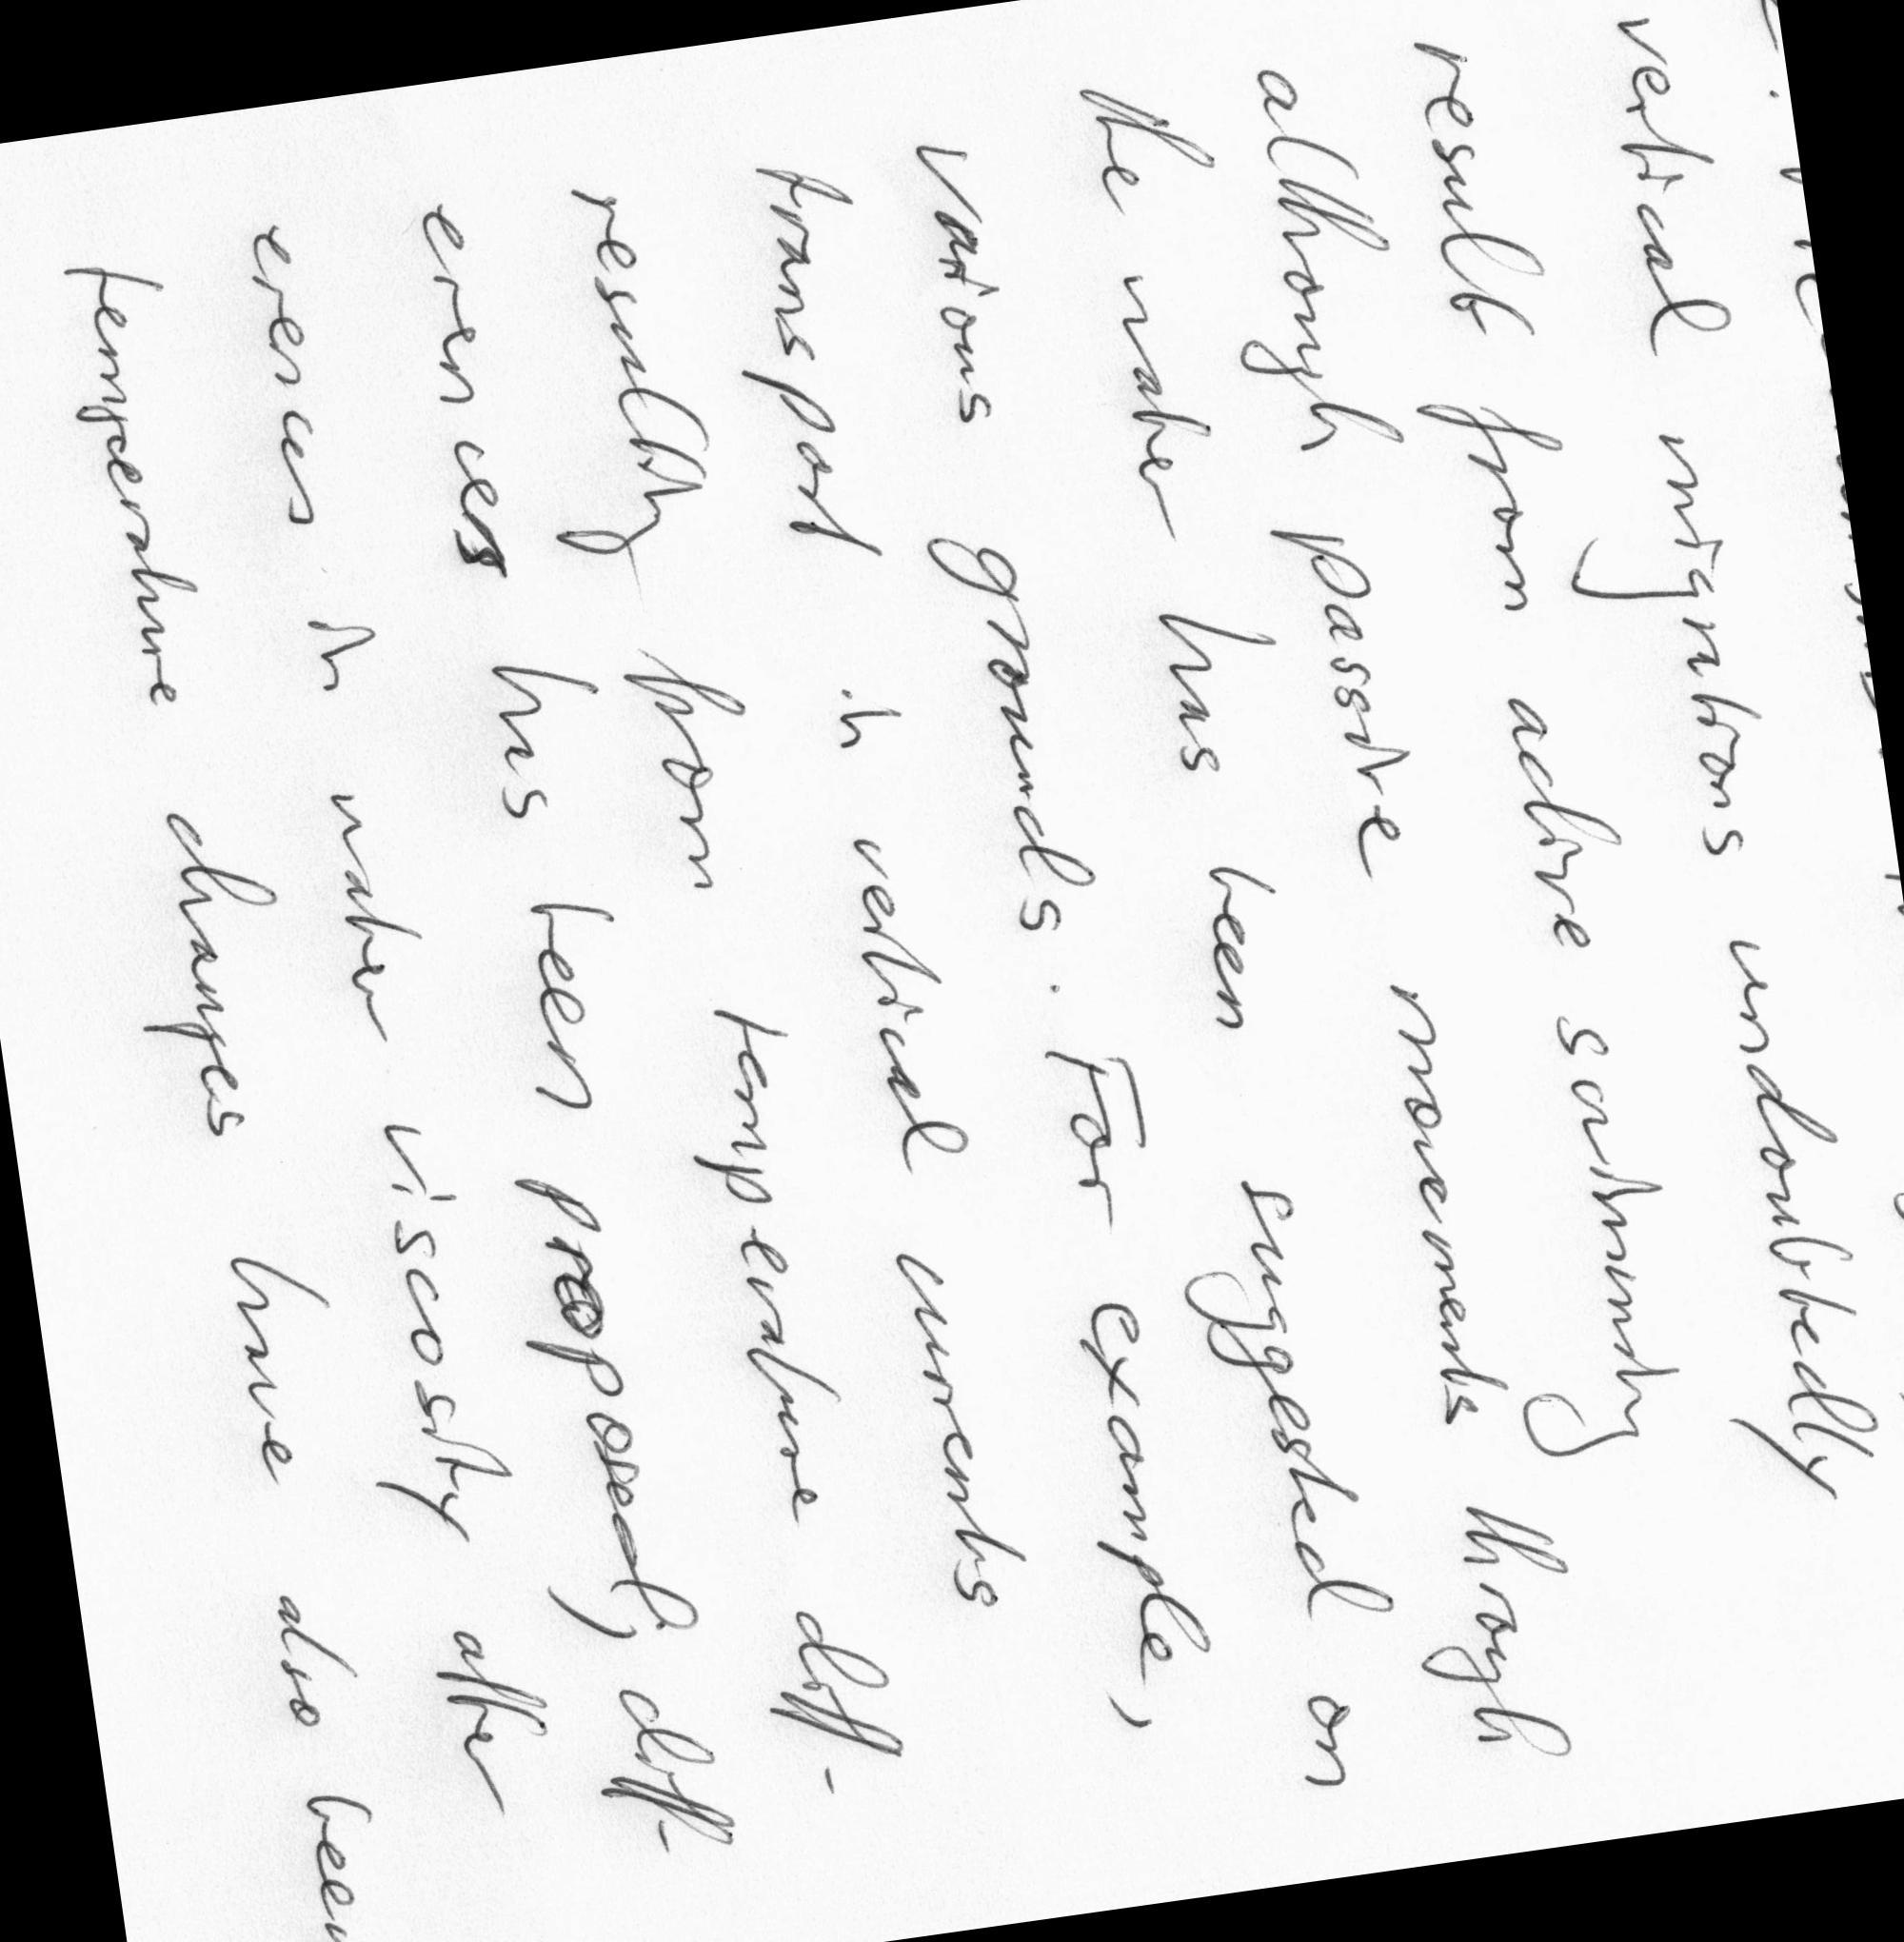 vertical migrations undoubtedly
result from active swimming
although passive movements through
the water has been suggested on
various grounds. For example,
transport in vertical currents
resulting from temperature diff-
erences has been proposed; diff-
erences in water viscosity after
temperature changes have also been